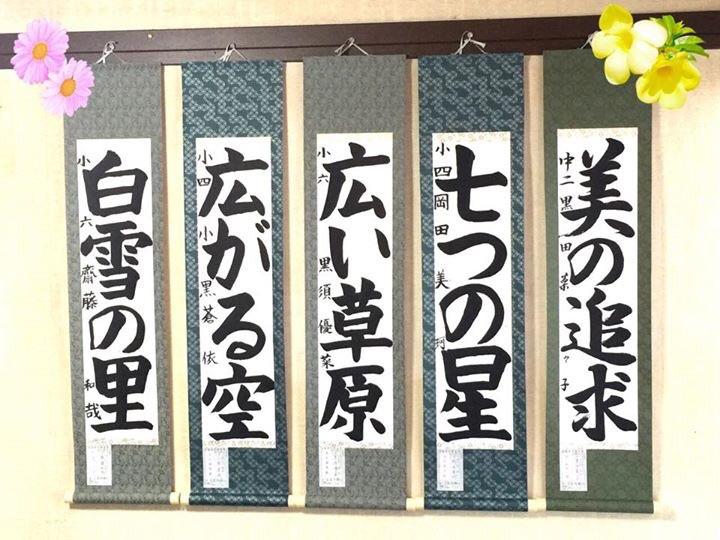 美の追求
中二 黒田菜々子
七つの星
小四 岡田美珂
広い草原
小六 黒須優菜
広がる空
小四 小黒蒼依
白雪の里
小六 齋藤和哉